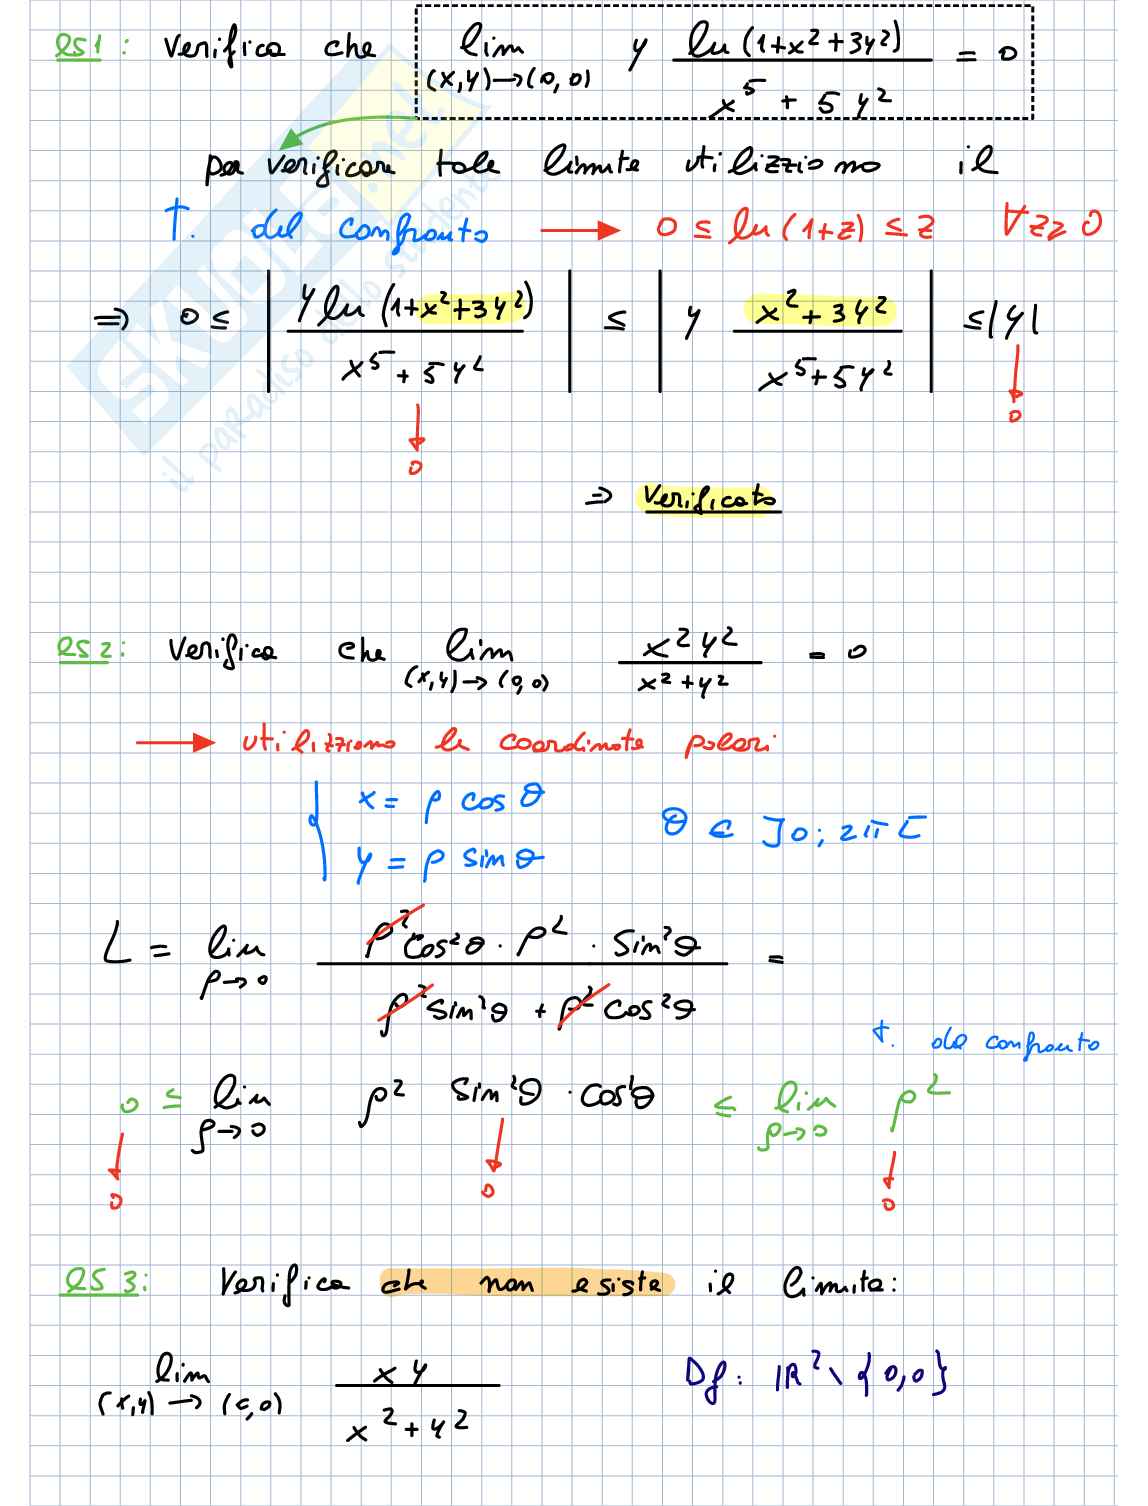 es1: Verifica che lim (x,y)→(0,0) y ln(1+x²+3y²) / x⁵ + 5y² = 0
per verificare tale limite utilizziamo il
T. del confronto → 0 ≤ ln(1+z) ≤ z ∀z≥0
⇒ 0 ≤ | y ln(1+x²+3y²) / x⁵+5y² | ≤ | y x²+3y² / x⁵+5y² | ≤ |y|
0
0
⇒ Verificato
es2: Verifica che lim (x,y)→(0,0) x²y² / x²+y² = 0
→ utilizziamo le coordinate polari
{ x = ρ cos θ
y = ρ sin θ
θ ∈ ]0; 2π[
L = lim ρ→0 ρ² cos²θ · ρ² · sin²θ / ρ² sin²θ + ρ² cos²θ =
t. del confronto
0 ≤ lim ρ→0 ρ² sin²θ · cos²θ ≤ lim ρ→0 ρ²
0 0 0
es 3: Verifica che non esiste il limite:
lim (x,y)→(0,0) xy / x²+y² Df: ℝ² \ {0,0}
SKUOLA.net
il paradiso dello studente